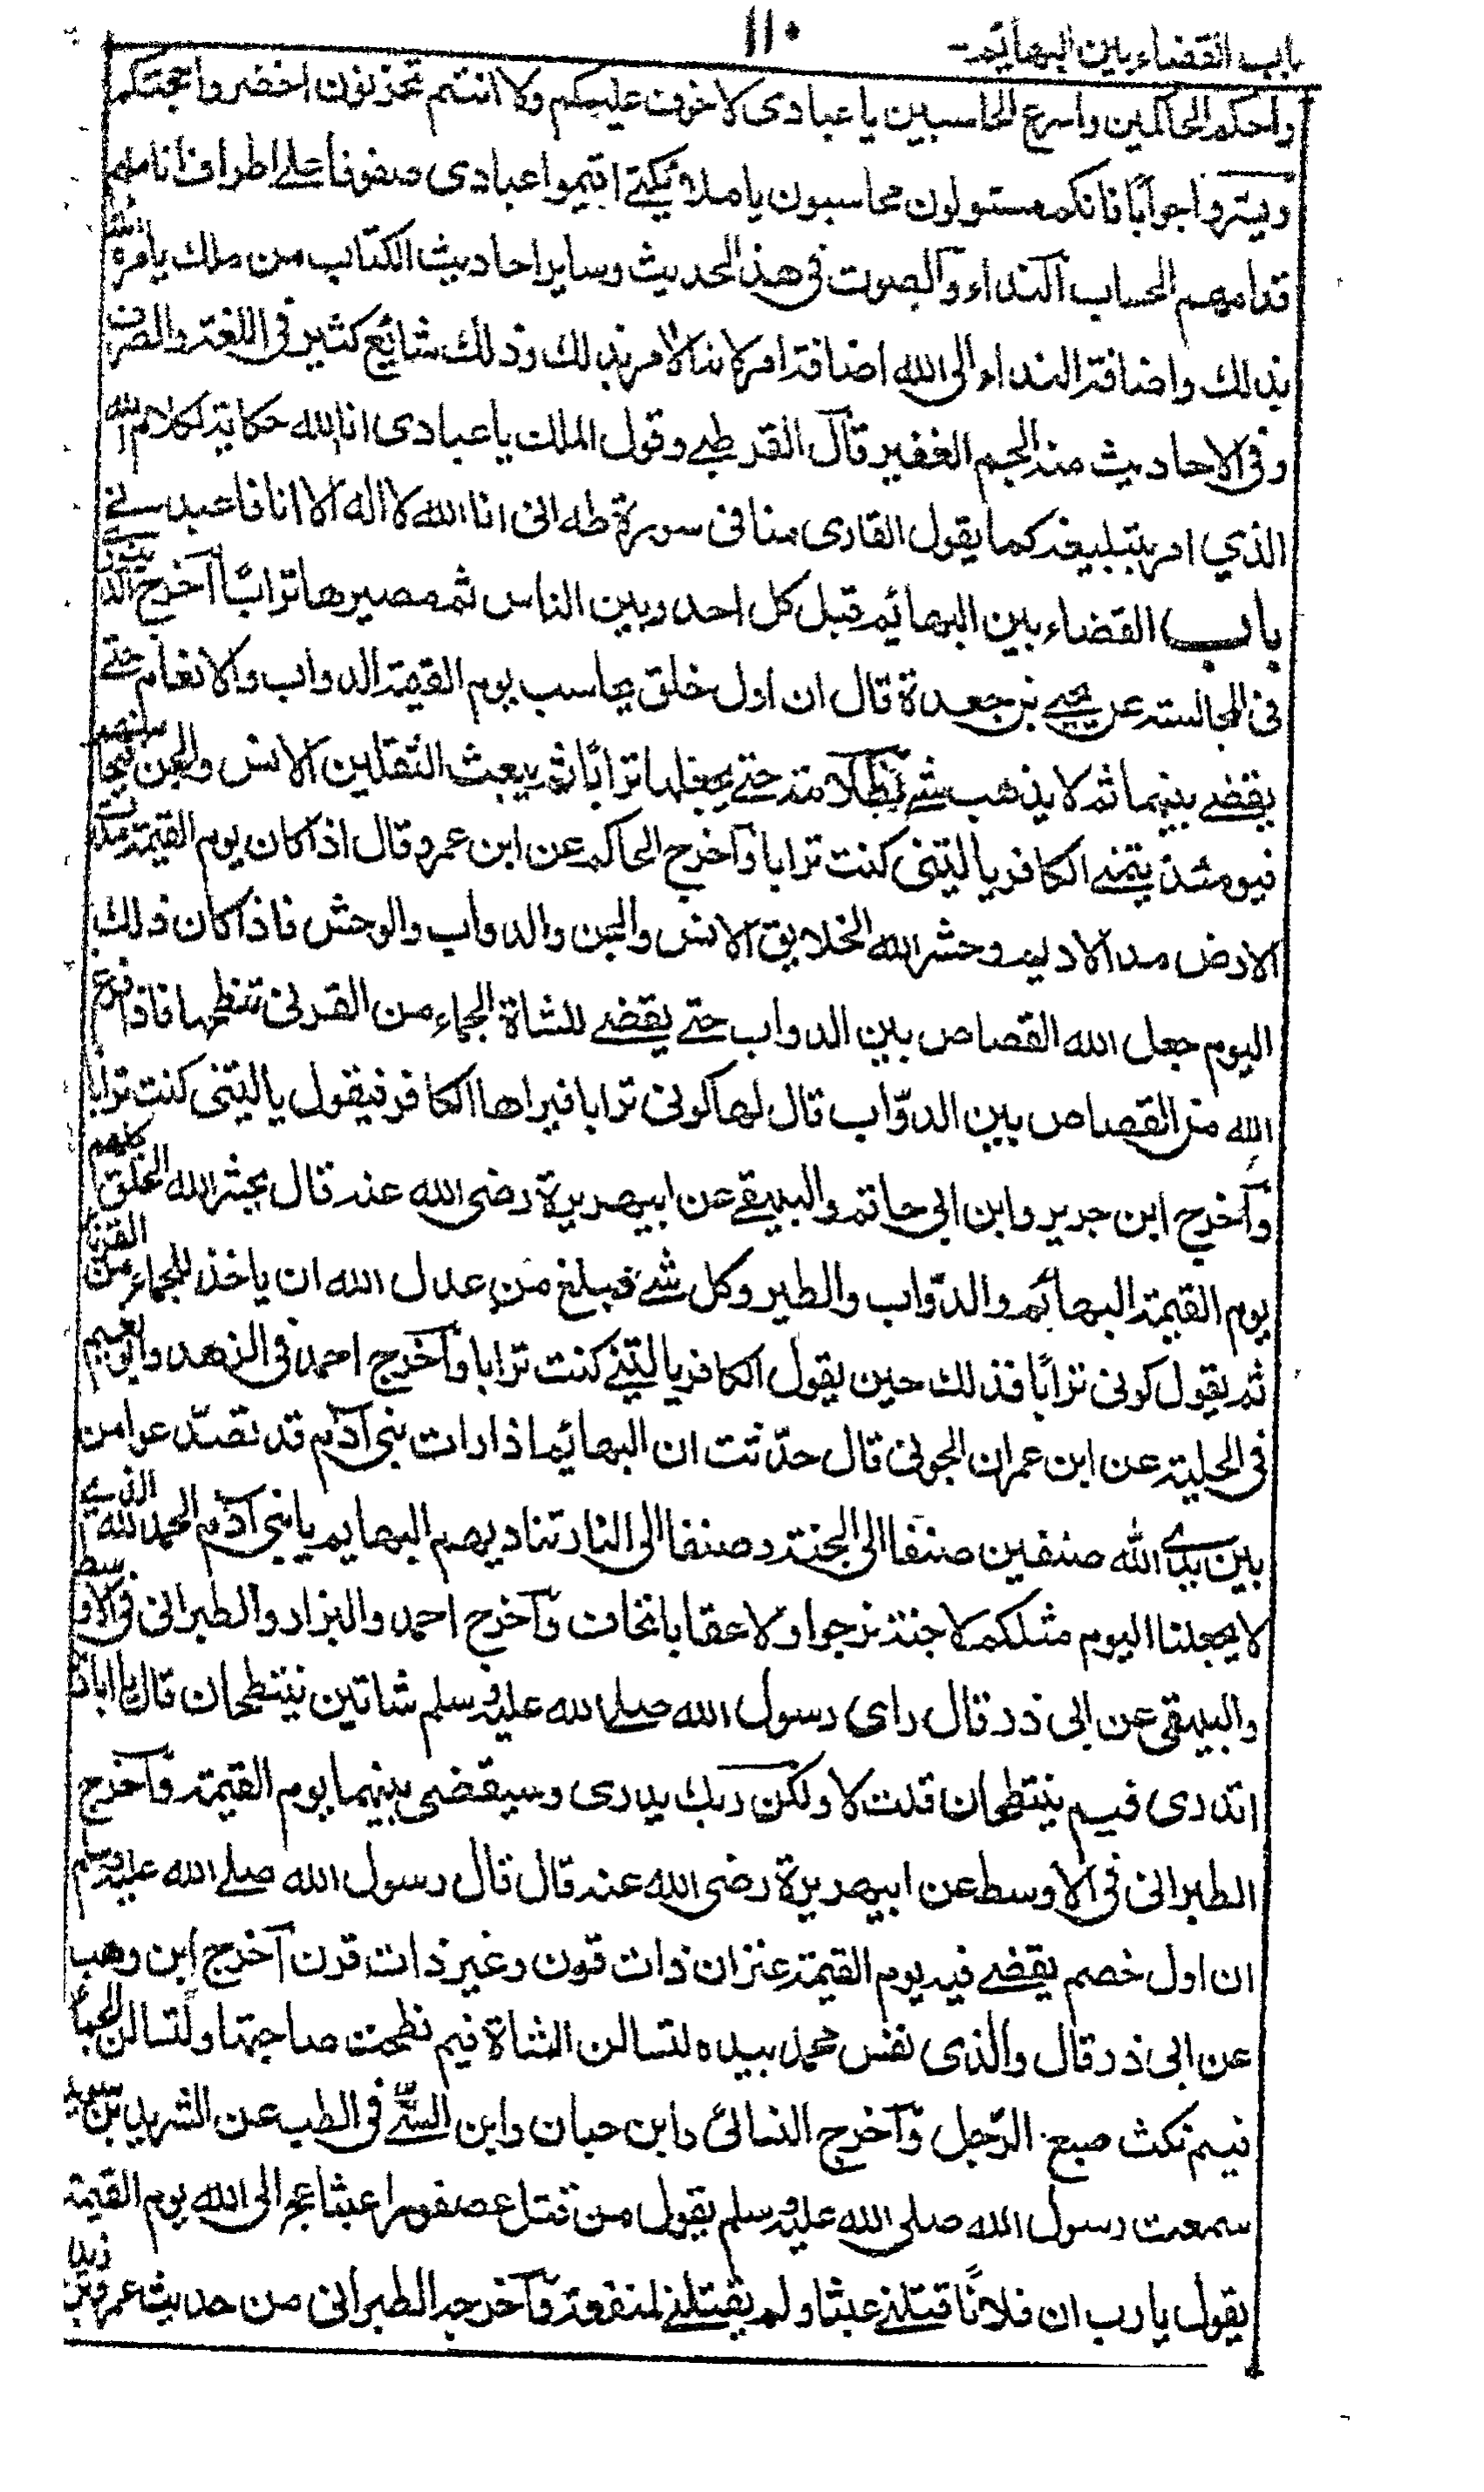 باب القضاء بين البهائم
١١٠
واحكم الحاكمين واسرع الحاسبين يا عبادى لا خوف عليكم ولا انتم تحزنون احضروا حجتكم
ويسروا جوابا فانكم مسئولون محاسبون يا ملائكتى اقيموا عبادى صفوفا على اطراف انامل
قدامهم للحساب النداء والصوت فى هذ الحديث وساير احاديث الكتاب من ملك يامره الله
بذلك واضافة النداء الى الله اضافة امر لانه الامر بذلك وذلك شائع كثير فى اللغة والصرف
وفى الاحاديث منه الجم الغفير قال القرطبى وقول الملك يا عبادى انا الله حكاية لكلام الله
الذي امر بتبليغه كما يقول القارى منا فى سورة طه انى انا الله لا اله الا انا فاعبدنى
باب القضاء بين البهائم قبل كل احد وبين الناس ثم مصيرها ترابًا آخرج الدينورى
فى المجالسة عن يحيى بن جعدة قال ان اول خلق يحاسب يوم القيمة الدواب والانعام حتى
يقضى بينهما ثم لا يذهب شئ بظلامته حتى يجعلها ترابًا ثم يبعث الثقلين الانس والجن فيحاسبهم
فيومئذ يتمنى الكافر يا ليتنى كنت ترابا وآخرج الحاكم عن ابن عمرو قال اذا كان يوم القيمة مدت
الارض مد الاديم وحشر الله الخلايق الانس والجن والدواب والوحش فاذا كان ذلك
اليوم جعل الله القصاص بين الدواب حتى يقضى للشاة الجماء من القرنى تنطحها فاذا فرغ
الله من القصاص بين الدوّاب قال لها كونى ترابا فيراها الكافر فيقول يا ليتنى كنت ترابا
وآخرج ابن جرير وابن ابى حاتم والبيهقى عن ابيهريرة رضى الله عنه قال يحشر الله الخلق كلهم
يوم القيمة البهائم والدّواب والطير وكل شئ فيبلغ من عدل الله ان ياخذ للجماء من القرنا
ثم يقول كونى ترابًا فذلك حين يقول الكافر يا ليتنى كنت ترابا وآخرج احمد فى الزهد وابو نعيم
فى الحلية عن ابن عمران الجونى قال حدّثت ان البهائم اذا رات بنى آدم قد تصدّعوا من
بين يدى الله صنفين صنفا الى الجنة وصنفا الى النار تناديهم البهايم يا بنى آدم الحمد لله الذى
لا يجعلنا اليوم مثلكم لا جنة نرجوا ولا عقابا نخاف وآخرج احمد والبزار والطبرانى فى الاوسط
والبيهقى عن ابى ذر قال راى رسول الله صلى الله عليه وسلم شاتين ينتطحان قال يا اباذر
اتدرى فيم ينتطحان قلت لا ولكن ربك يدرى وسيقضى بينهما يوم القيمة وآخرج
الطبرانى فى الاوسط عن ابيهريرة رضى الله عنه قال قال رسول الله صلى الله عليه وسلم
ان اول خصم يقضى فيه يوم القيمة عنزان ذات قرن وغير ذات قرن آخرج ابن وهب
عن ابى ذر قال والذى نفس محمد بيده لتسالن الشاة فيم نطحت صاحبتها ولتسالن الجماء
فيم نكث صبع الرّجل وآخرج النسائى وابن حبان وابن السنّى فى الطب عن الشريد بن سويد
سمعت رسول الله صلى الله عليه وسلم يقول من قتل عصفورا عبثا عج الى الله يوم القيمة
يقول يا رب ان فلانًا قتلنى عبثا ولم يقتلنى لمنفعة وآخرجه الطبرانى من حديث عمرو بن